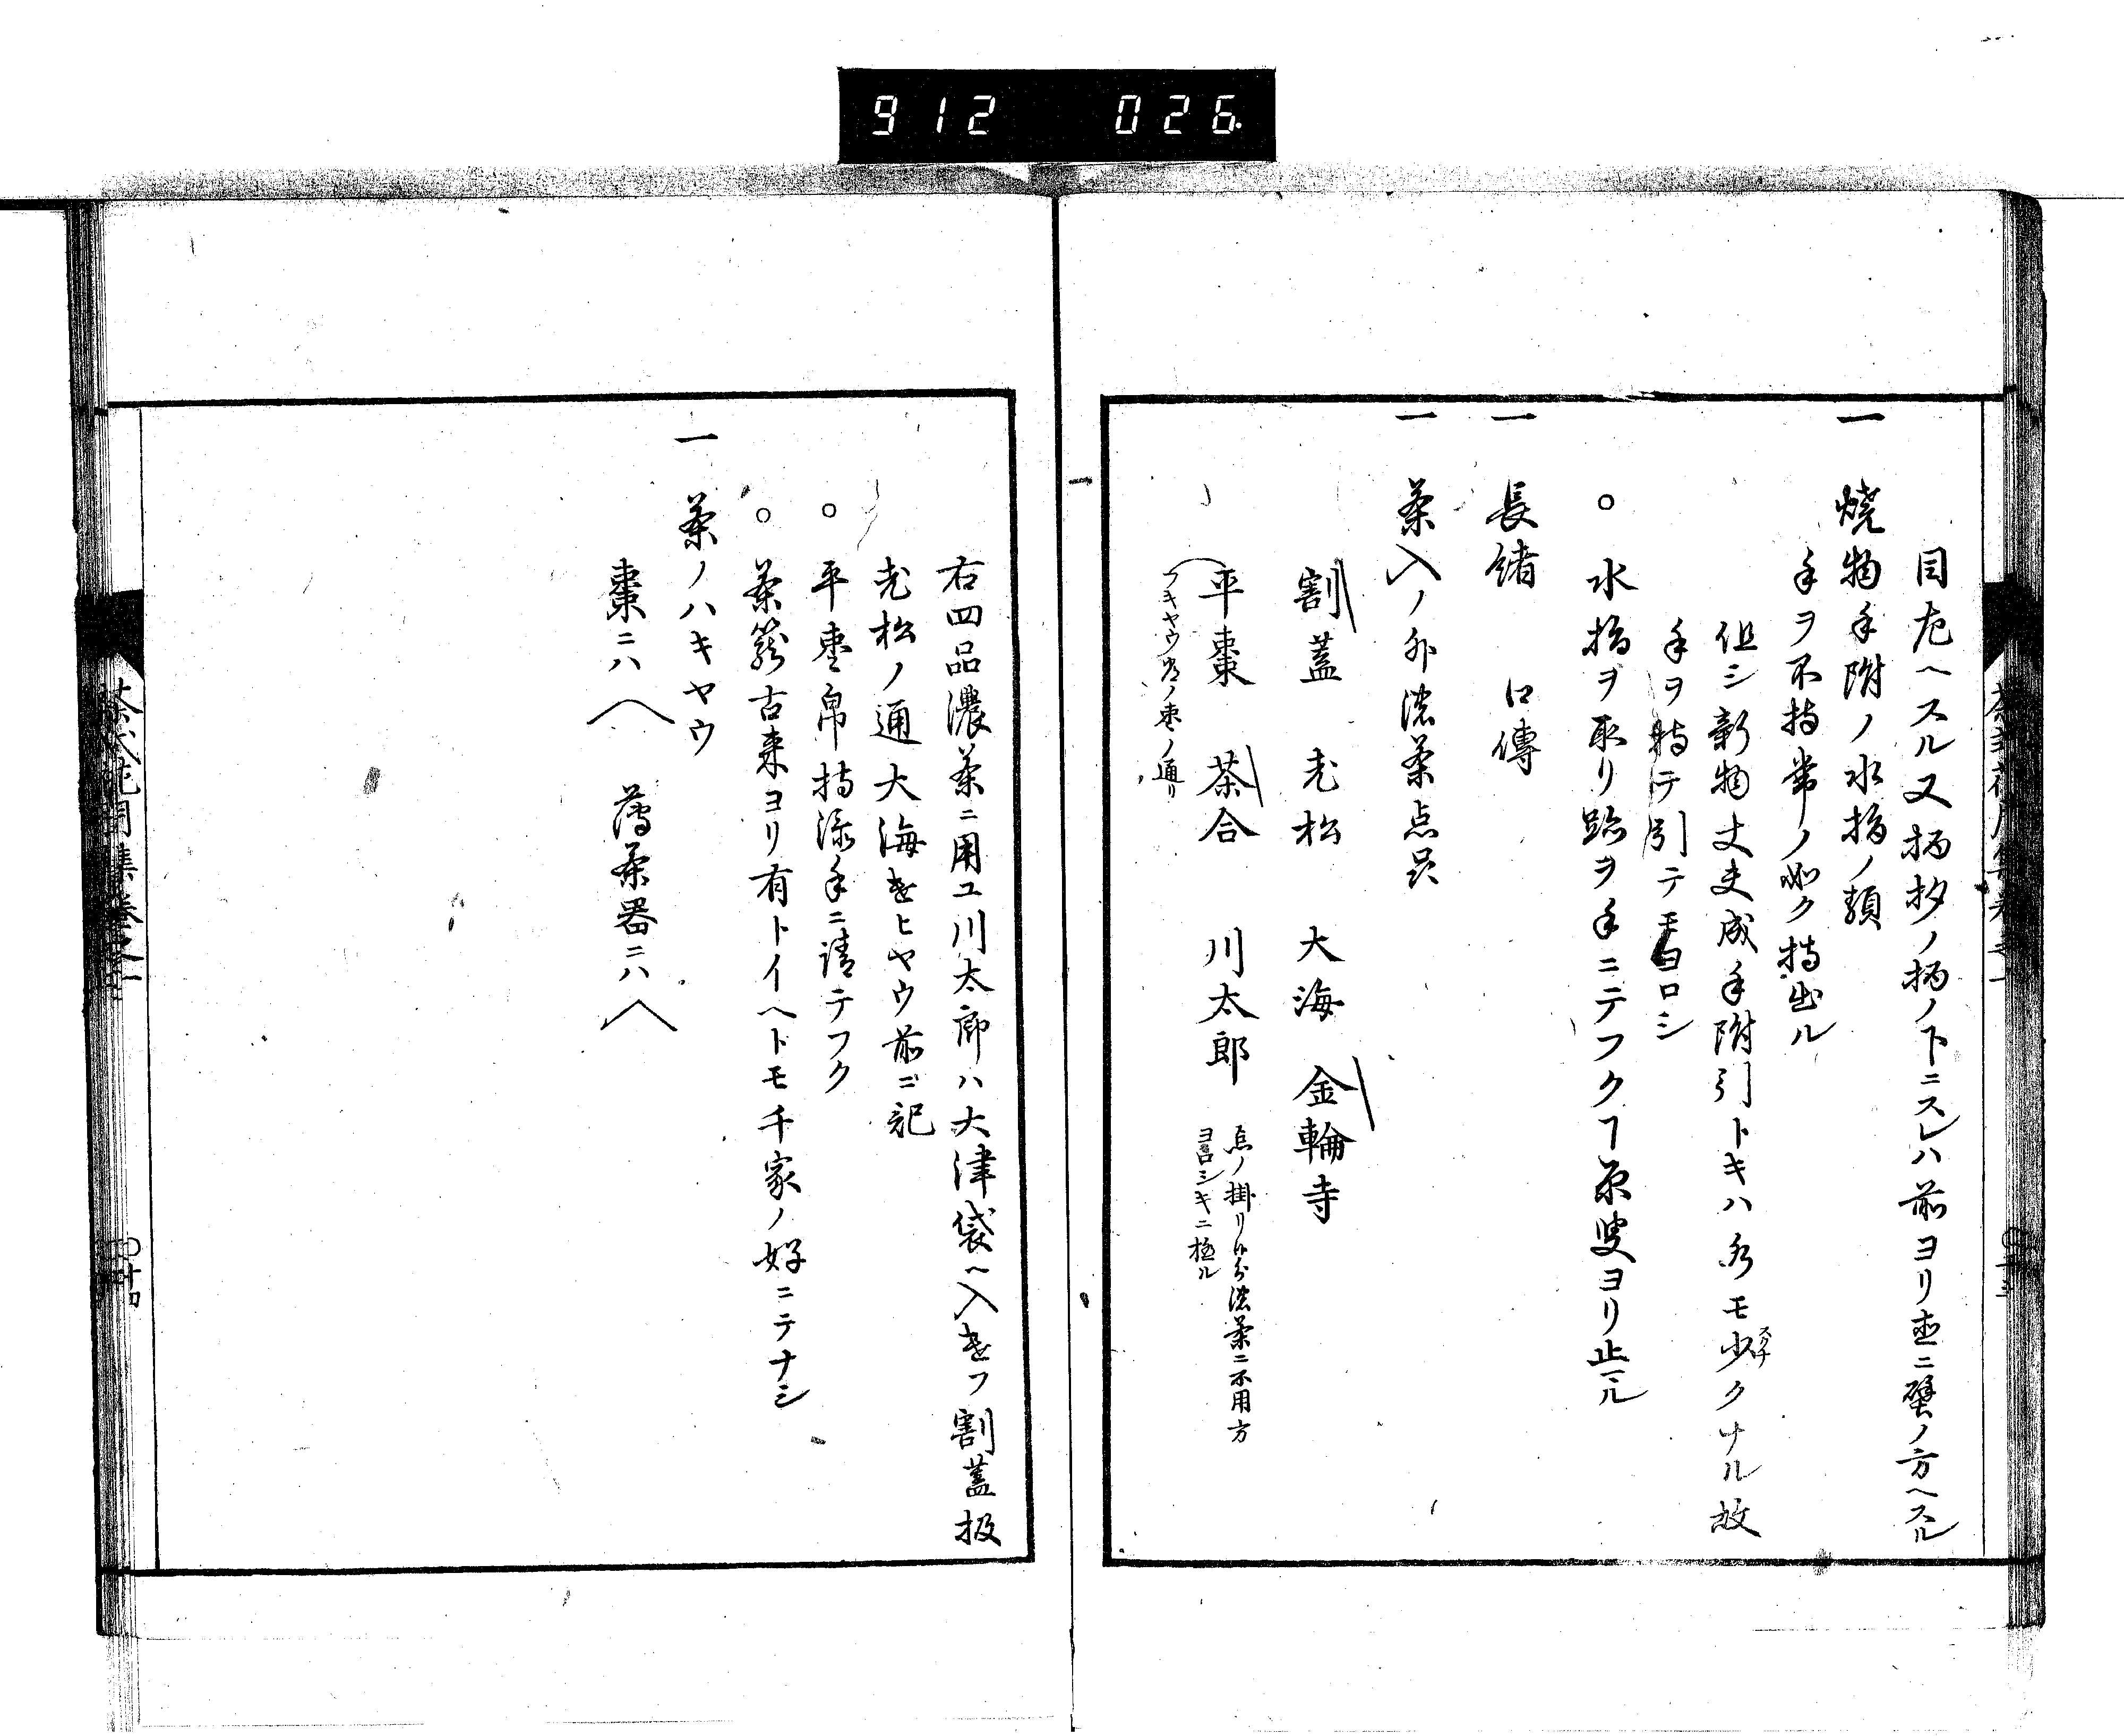 912 026
目左ヘスル又柄杓ノ柄ノ下ニスレハ前ヨリ直ニ壁ノ方ヘスル
一 焼物手附ノ水指ノ類
手ヲ不持常ノ如ク持出ル
但シ新物丈夫成手附引トキハ水モ少クナル故
スクナ
手ヲ持テ引テモヨロシ
○ 水指ヲ取リ跡ヲ手ニテフクヿ原叟ヨリ止ル
一 長緒 口傳
一 茶入ノ外濃茶点品
割蓋 老松 大海 金輪寺
平棗 茶合 川太郎
ノ掛リ 濃茶ニ不用方
ヨロシキニ極ル
フキヤウ常ノ棗ノ通リ
右四品濃茶ニ用ユ川太郎ハ大津袋ヘ入遣フ割蓋扱
老松ノ通大海遣ヒヤウ前ニ記
○ 平棗帛持添手ニ請テフク
○ 茶籠古来ヨリ有トイヘトモ千家ノ好ニテナシ
一 茶ノハキヤウ
棗ニハ 薄茶器ニハ
茶式花月集巻之一
○十四